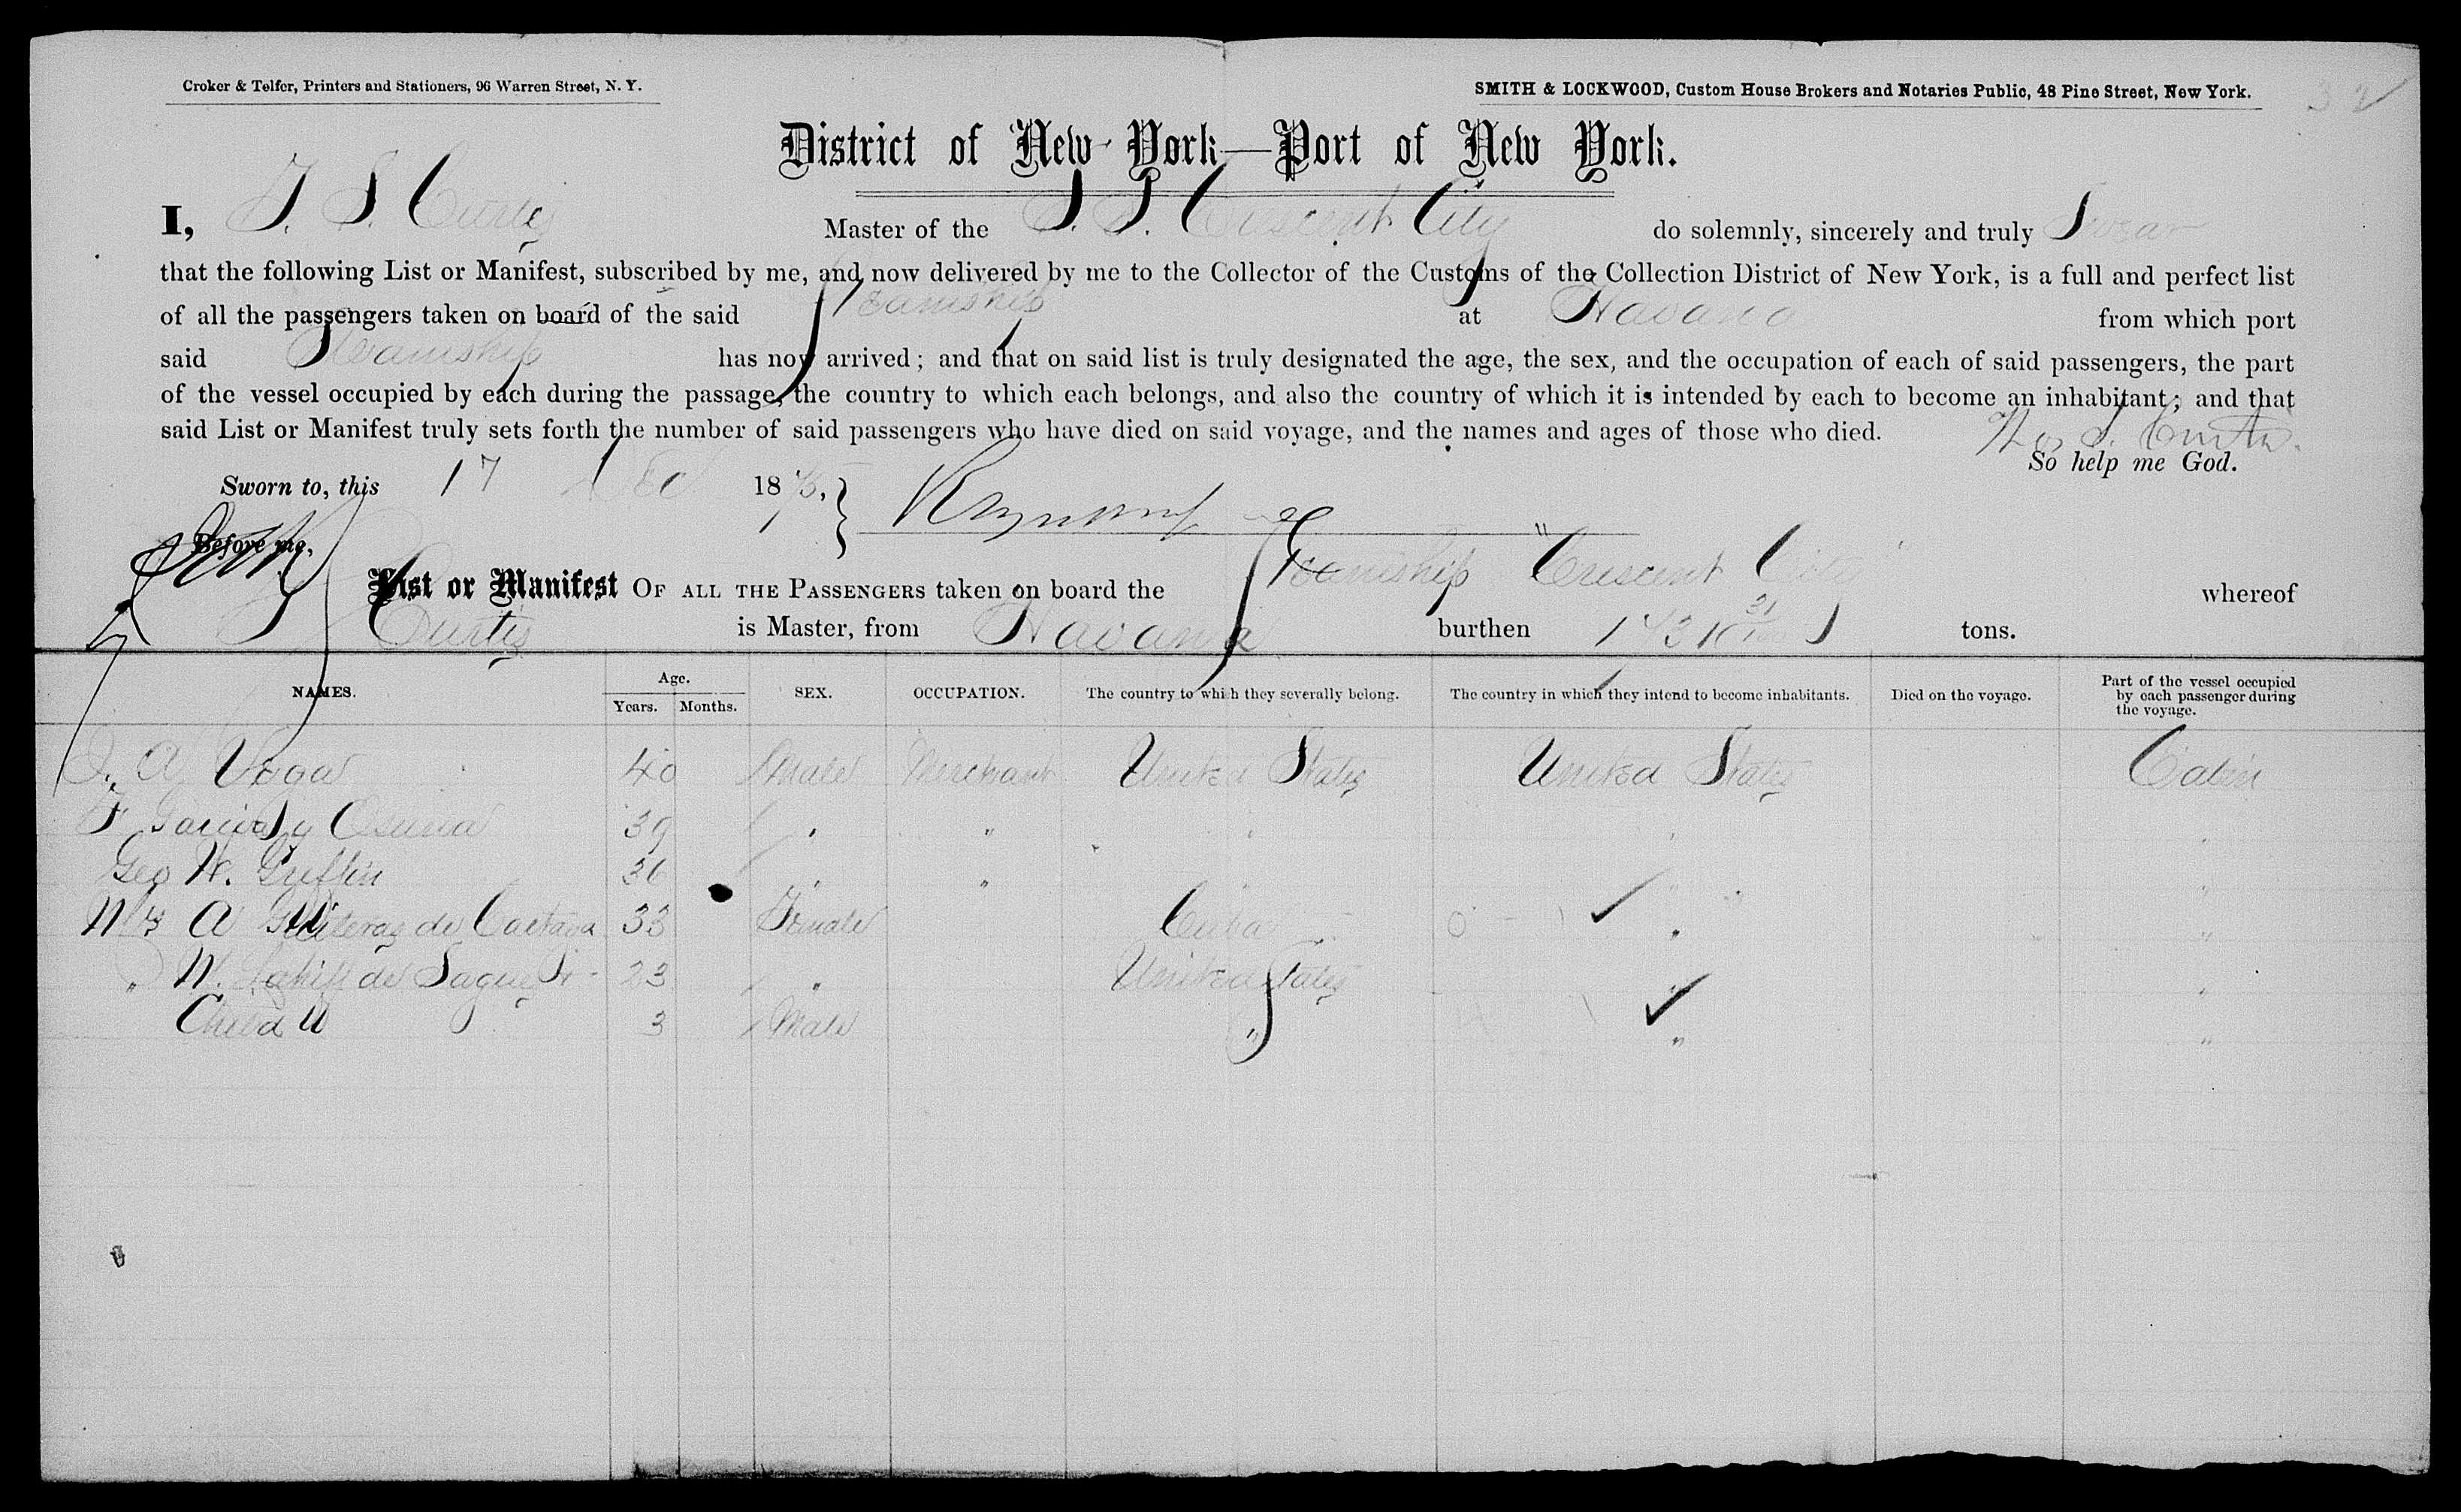 Croker & Telfer, Printers and Stationers, 96 Warren Street, N. Y.
SMITH & LOCKWOOD, Custom House Brokers and Notaries Public, 48 Pine Street, New York.
32
District of New-York—Port of New York.
I, T. S. Curtis Master of the S. S. Crescent City do solemnly, sincerely and truly Swear
that the following List or Manifest, subscribed by me, and now delivered by me to the Collector of the Customs of the Collection District of New York, is a full and perfect list
of all the passengers taken on board of the said Steamship at Havana from which port
said Steamship has now arrived; and that on said list is truly designated the age, the sex, and the occupation of each of said passengers, the part
of the vessel occupied by each during the passage, the country to which each belongs, and also the country of which it is intended by each to become an inhabitant; and that
said List or Manifest truly sets forth the number of said passengers who have died on said voyage, and the names and ages of those who died. S. Curtis
So help me God.
Sworn to, this 17 Dec 1875,
Before me,
List or Manifest OF ALL THE PASSENGERS taken on board the Steamship "Crescent City" whereof
Curtis is Master, from Havana burthen tons.
NAMES. Age. Years. Months. SEX. OCCUPATION. The country to which they severally belong. The country in which they intend to become inhabitants. Died on the voyage. Part of the vessel occupied by each passenger during the voyage.
A Vega 40 Male Merchant United States United States Cabin
F Garcia y Osuna 39 " " " " "
Geo W. Griffin 36 " " " " "
Mrs A Guiteras de Cartaya 33 Female Cuba " "
" M. de Sague 23 " United States " "
Child 3 Male " " "